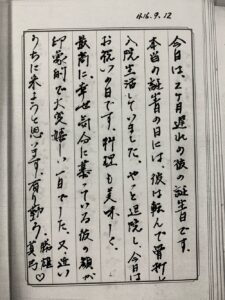 H16.9.12
今日は、2ヶ月遅れの彼の誕生日です。
本当の誕生日の日には、彼は転んで骨折し
入院生活していました。やっと退院し、今日は
お祝いの日です。料理も美しく、
最高に幸せ気分に慕っている彼の顔が
印象的で大変嬉しい一日でした。又、近い
うちに来ようと思います。有り難う。